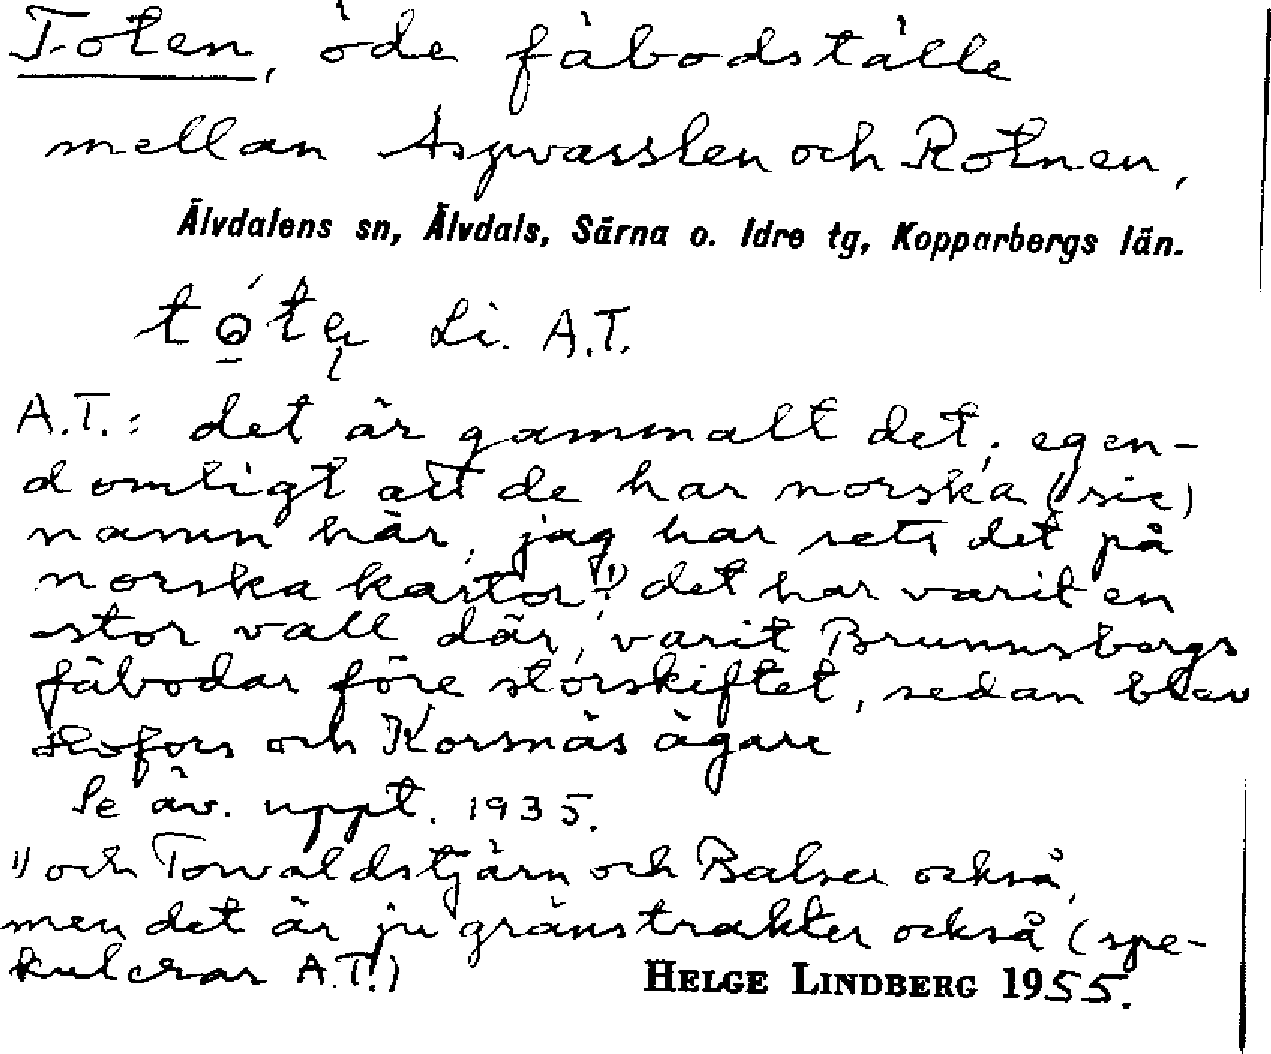 Toten, öde fäbodställe
mellan Aspvasslen och Rotnen,
Älvdalens sn, Älvdals, Särna o. Idre tg, Kopparbergs län.
Li. A.T.
A.T.: det är gammalt det, egen-
domligt att de har norska (sic)
namn här, jag har sett det på
norska kartor ¹⁾, det har varit en
stor vall där, varit Brunnsbergs
fäbodar före storskiftet, sedan blev
och Korsnäs ägare
Se äv. uppt. 1935.
¹⁾ och Torvaldstjärn och också,
men det är ju gränstrakter också (spe-
kulerar A.T!)
HELGE LINDBERG 1955.